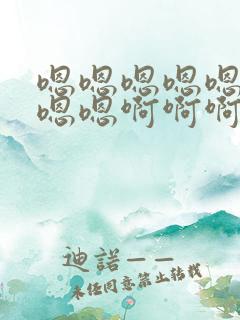 嗯嗯嗯嗯嗯
嗯嗯啊啊啊
迪諾——
未经同意禁止转载